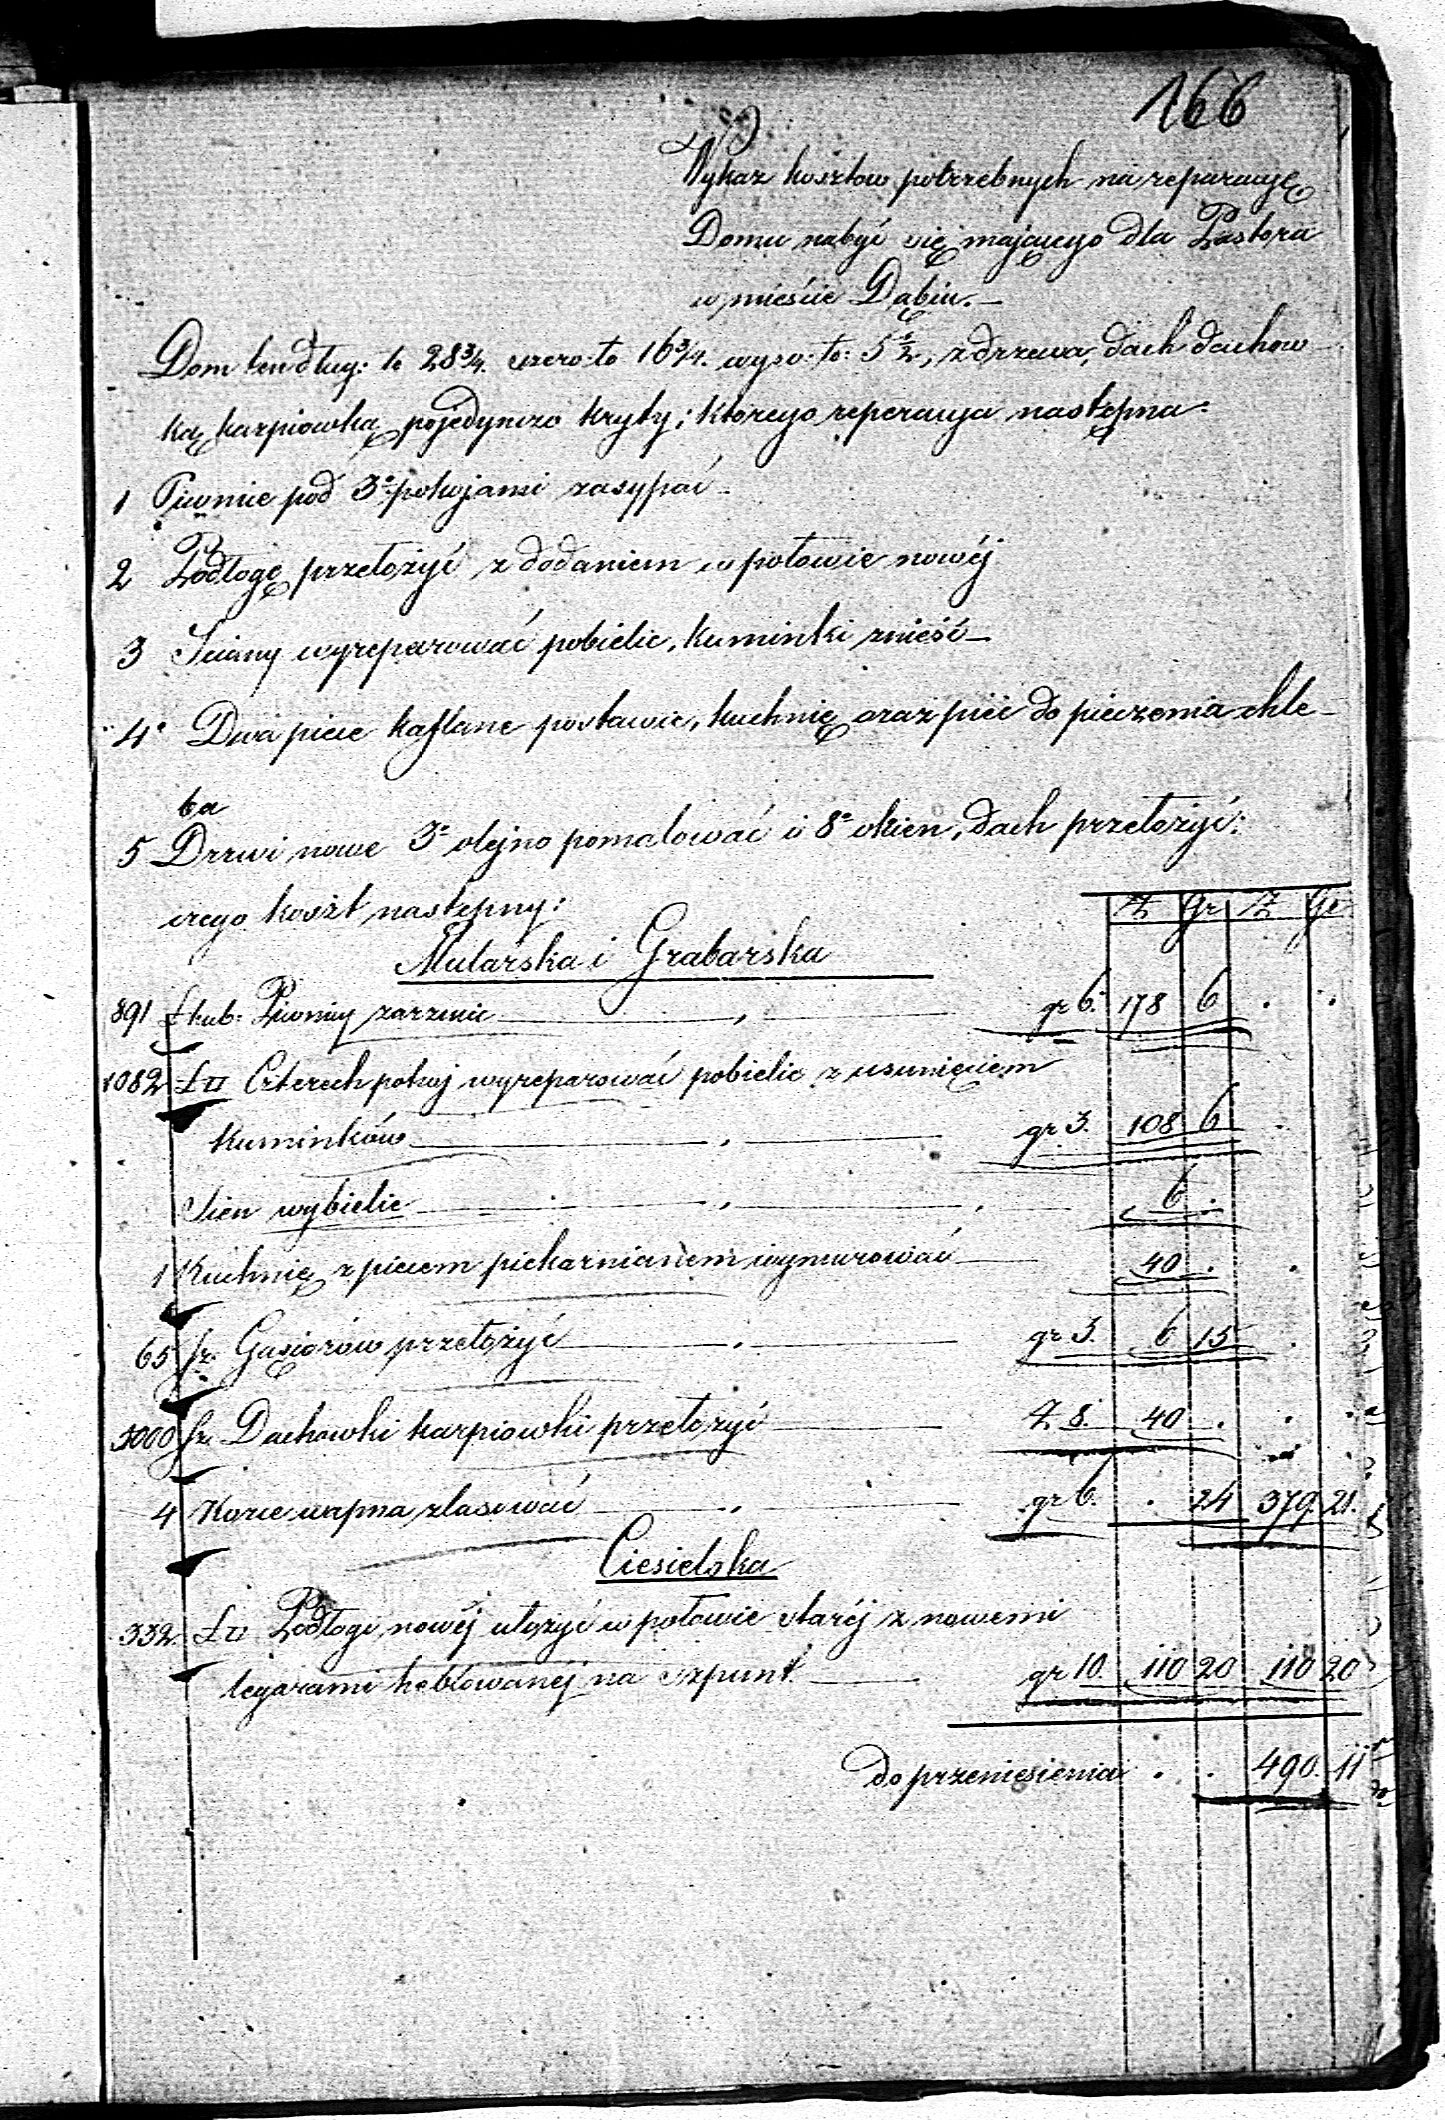 166
Wykaz kosztow potrzebnych na reparacyę
Domu nabyć się mającego dla Pastora
w mieście Dąbiu.—
Dom ten dług: to 28 3/4. szero: to 16 3/4. wyso: to: 5 1/2, z drzewa, dach dachow
ką karpiowką pojedynczo kryty; ktorego reperacya następna:
1 Piwnice pod 3a pokojami zasypać—
2 Podłogę przełożyć z dodaniem w połowie nowéj
3 Sciany wyreparować pobielic, kuminki znieść—
4 Dwa piece kaflane postawic, kuchnię oraz piec do pieczenia chle-
ba
5 Drzwi nowe 3a olejno pomalować i 8a okien, dach przełożyć:
czego koszt następny:
Z Gr Z Gr
Mularska i Grabarska
891 Ł kub: Piwnicy zarzucic gr 6. 178 6
1082 Ł□ Czterech pokoj wyreparować pobielic z usunięciem
Kuminków gr 3. 108 6
Sien wybielic 6
1 Kuchnię z piecem piekarnianem wymurować 40
65 sz. Gąsiorów przełożyć gr 3. 6 15
5000 sz. Dachowki karpiowki przełożyć Z 8. 40
4 Korce wapna zlasować gr 6. 24 379 21.
Ciesielska
332 Ł□ Podłogi nowéj ułożyć w połowie staréj z nowemi
legarami heblowanéj na szpunt gr 10. 110 20 110 20
do przeniesienia 490. 11